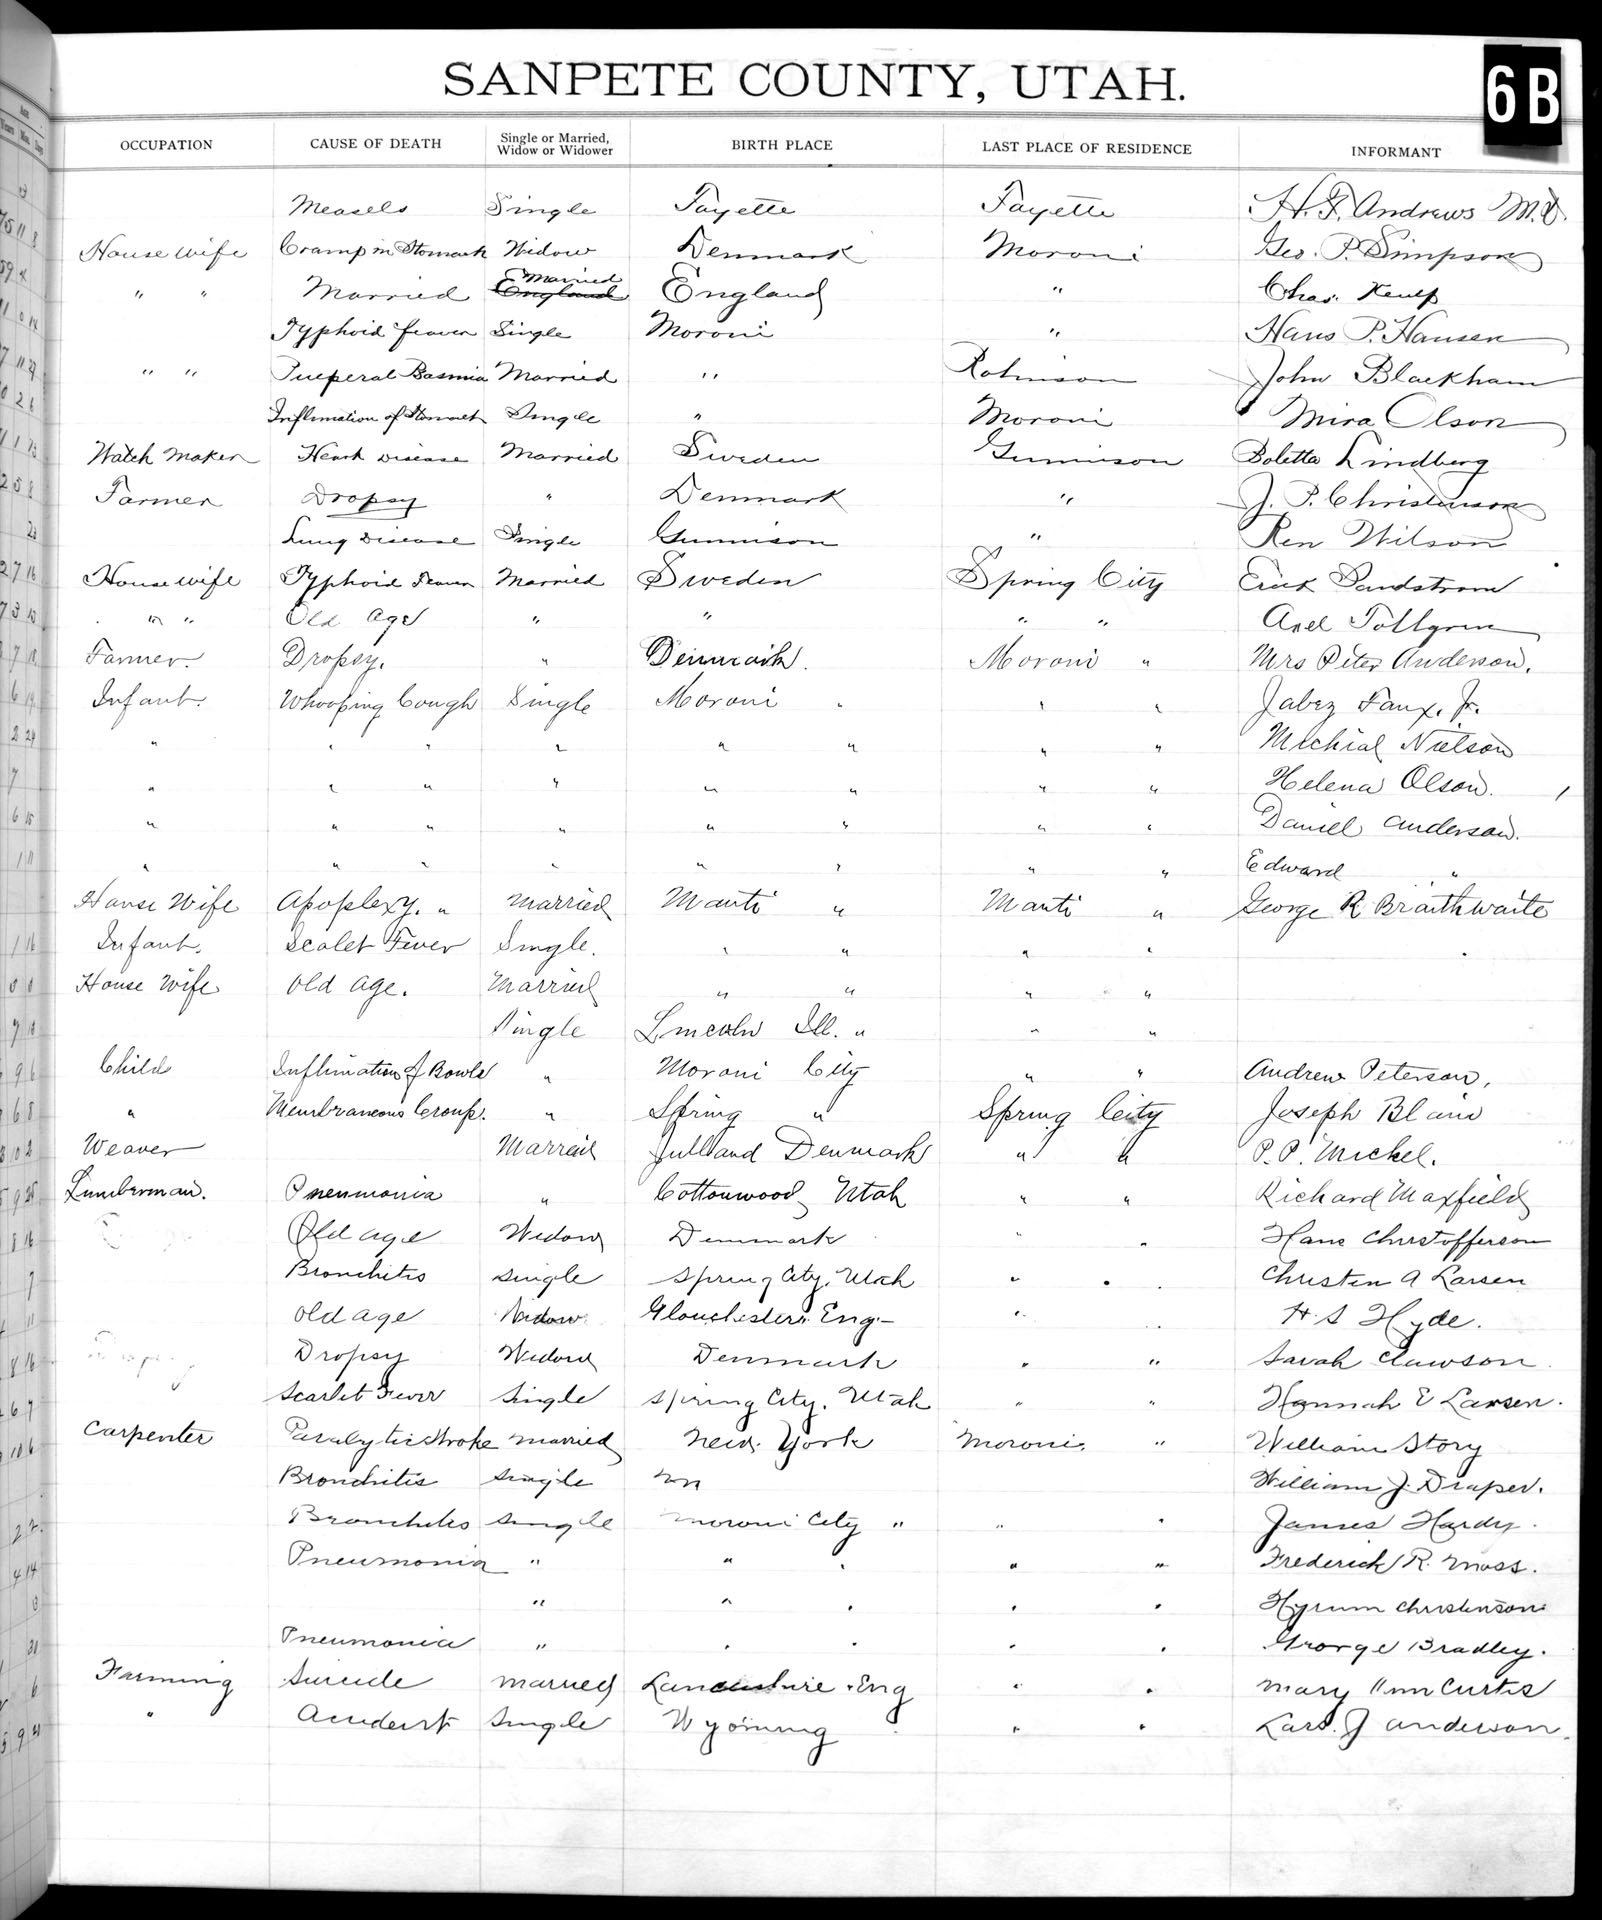 SANPETE COUNTY, UTAH.
6B
OCCUPATION CAUSE OF DEATH Single or Married, Widow or Widower BIRTH PLACE LAST PLACE OF RESIDENCE INFORMANT
Measels Single Fayette Fayette H. F. Andrews M.D.
House wife Cramp in Stomark Widow Denmark Moroni Geo. P. Simpson
" " Married England Married England " Chas. Kemp
Typhoid feaver Single Moroni " Hans P. Hansen
" " Pueperal Married " Robinson John Blackham
Inflimation of Single " Moroni Mira Olson
Watch Maker Heart Disease Married Sweden Gunnison Boletta Lindberg
Farmer Dropsy " Denmark " J. P. Christenson
Lung Disease Single Gunnison " Ren Wilson
House wife Typhoid Feaver Married Sweden Spring City Erick Sandstrom
" " Old Age " " " " Axel Tollgren
Farmer. Dropsy. " Denmark. Moroni " Mrs Peter Anderson.
Infant. Whooping Cough Single Moroni " " " Jabez Faux. Jr.
" " " " " " " " Michial Nielson
" " " " " " " " Helena Olson.
" " " " " " " " Daniel Anderson.
" " " " " " " " Edward "
House Wife Apoplexy. " Married Manti " Manti " George R Braithwaite
Infant. Scalet Fever Single. " " " "
House Wife Old Age. Married " " " "
Single Lincoln Ill. " " "
Child Inflimation of Bowls " Moroni City " " Andrew Peterson,
" Membraneous Croup. " Spring " Spring City Joseph Blain
Weaver Married Jutland Denmark " " P. P. Mickel.
Lumberman. Pneumonia " Cottonwood Utah " " Richard Maxfield
Old age Widow Denmark " " Hans Christofferson
Bronchitis single Spring City, Utah " " " Christen A Larsen
old age Widow Glouchesters Eng- " " H S Hyde.
Dropsy Widow Denmark " " Sarah Clawson
Scarlet Fever Single Spring City, Utah " " Hannah E Larsen.
Carpenter Paralytic stroke married New York Moroni " William Story
Bronchitis single William J. Draper.
Bronchitis single Moroni City " " " James Hardy.
Pneumonia " " " " " Frederick R. Moss.
" " " " " Hyrum Christenson
Pneumonia " " " " " George Bradley.
Farming Suicide married Lancashire Eng " " Mary Ann Curtis
" Accident Single Wyoming " " Lars. J Anderson.